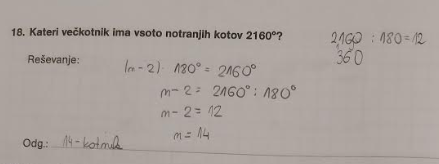 18. Kateri večkotnik ima vsoto notranjih kotov 2160°?
2160 : 180 = 12
360
Reševanje:
(n-2) · 180° = 2160°
n-2 = 2160° : 180°
n-2 = 12
n = 14
Odg.: 14-kotnik